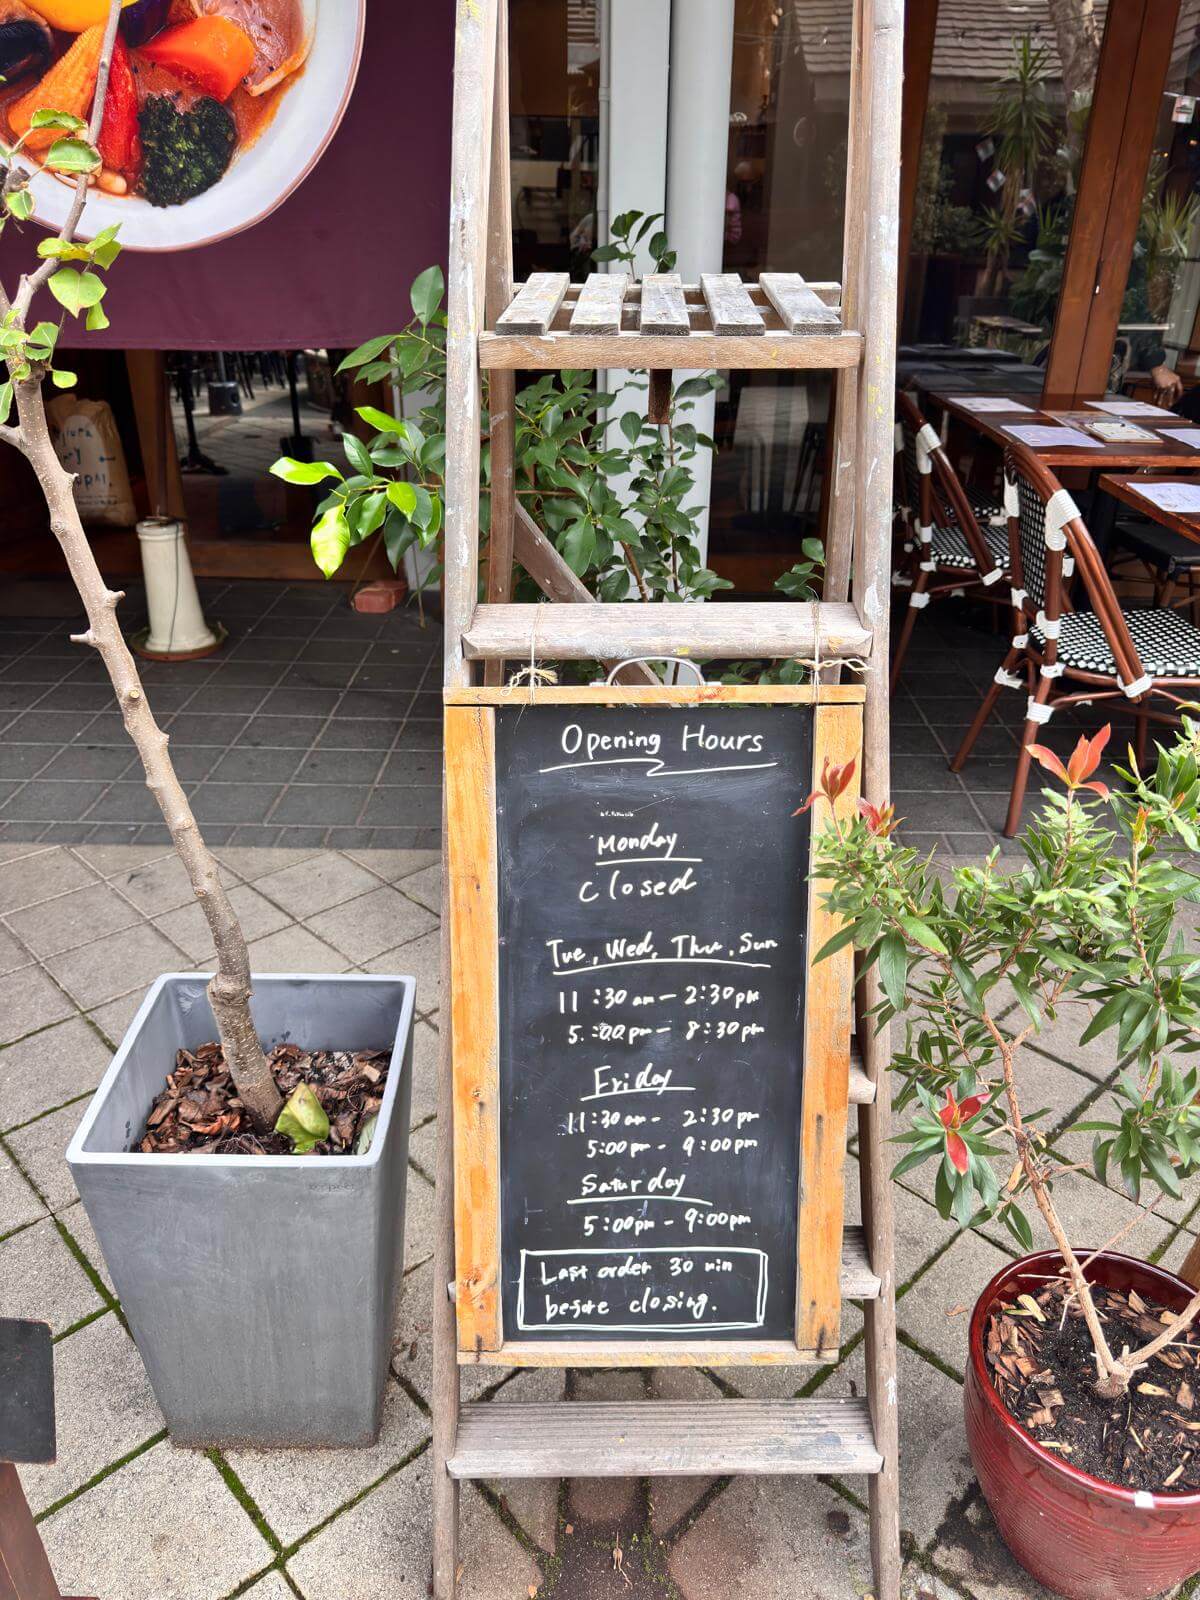 Opening Hours
Monday
closed
Tue, Wed, Thu, Sun
11:30am - 2:30pm
5:00pm - 8:30pm
Friday
11:30am - 2:30pm
5:00pm - 9:00pm
Saturday
5:00pm - 9:00pm
Last order 30 min
before closing.